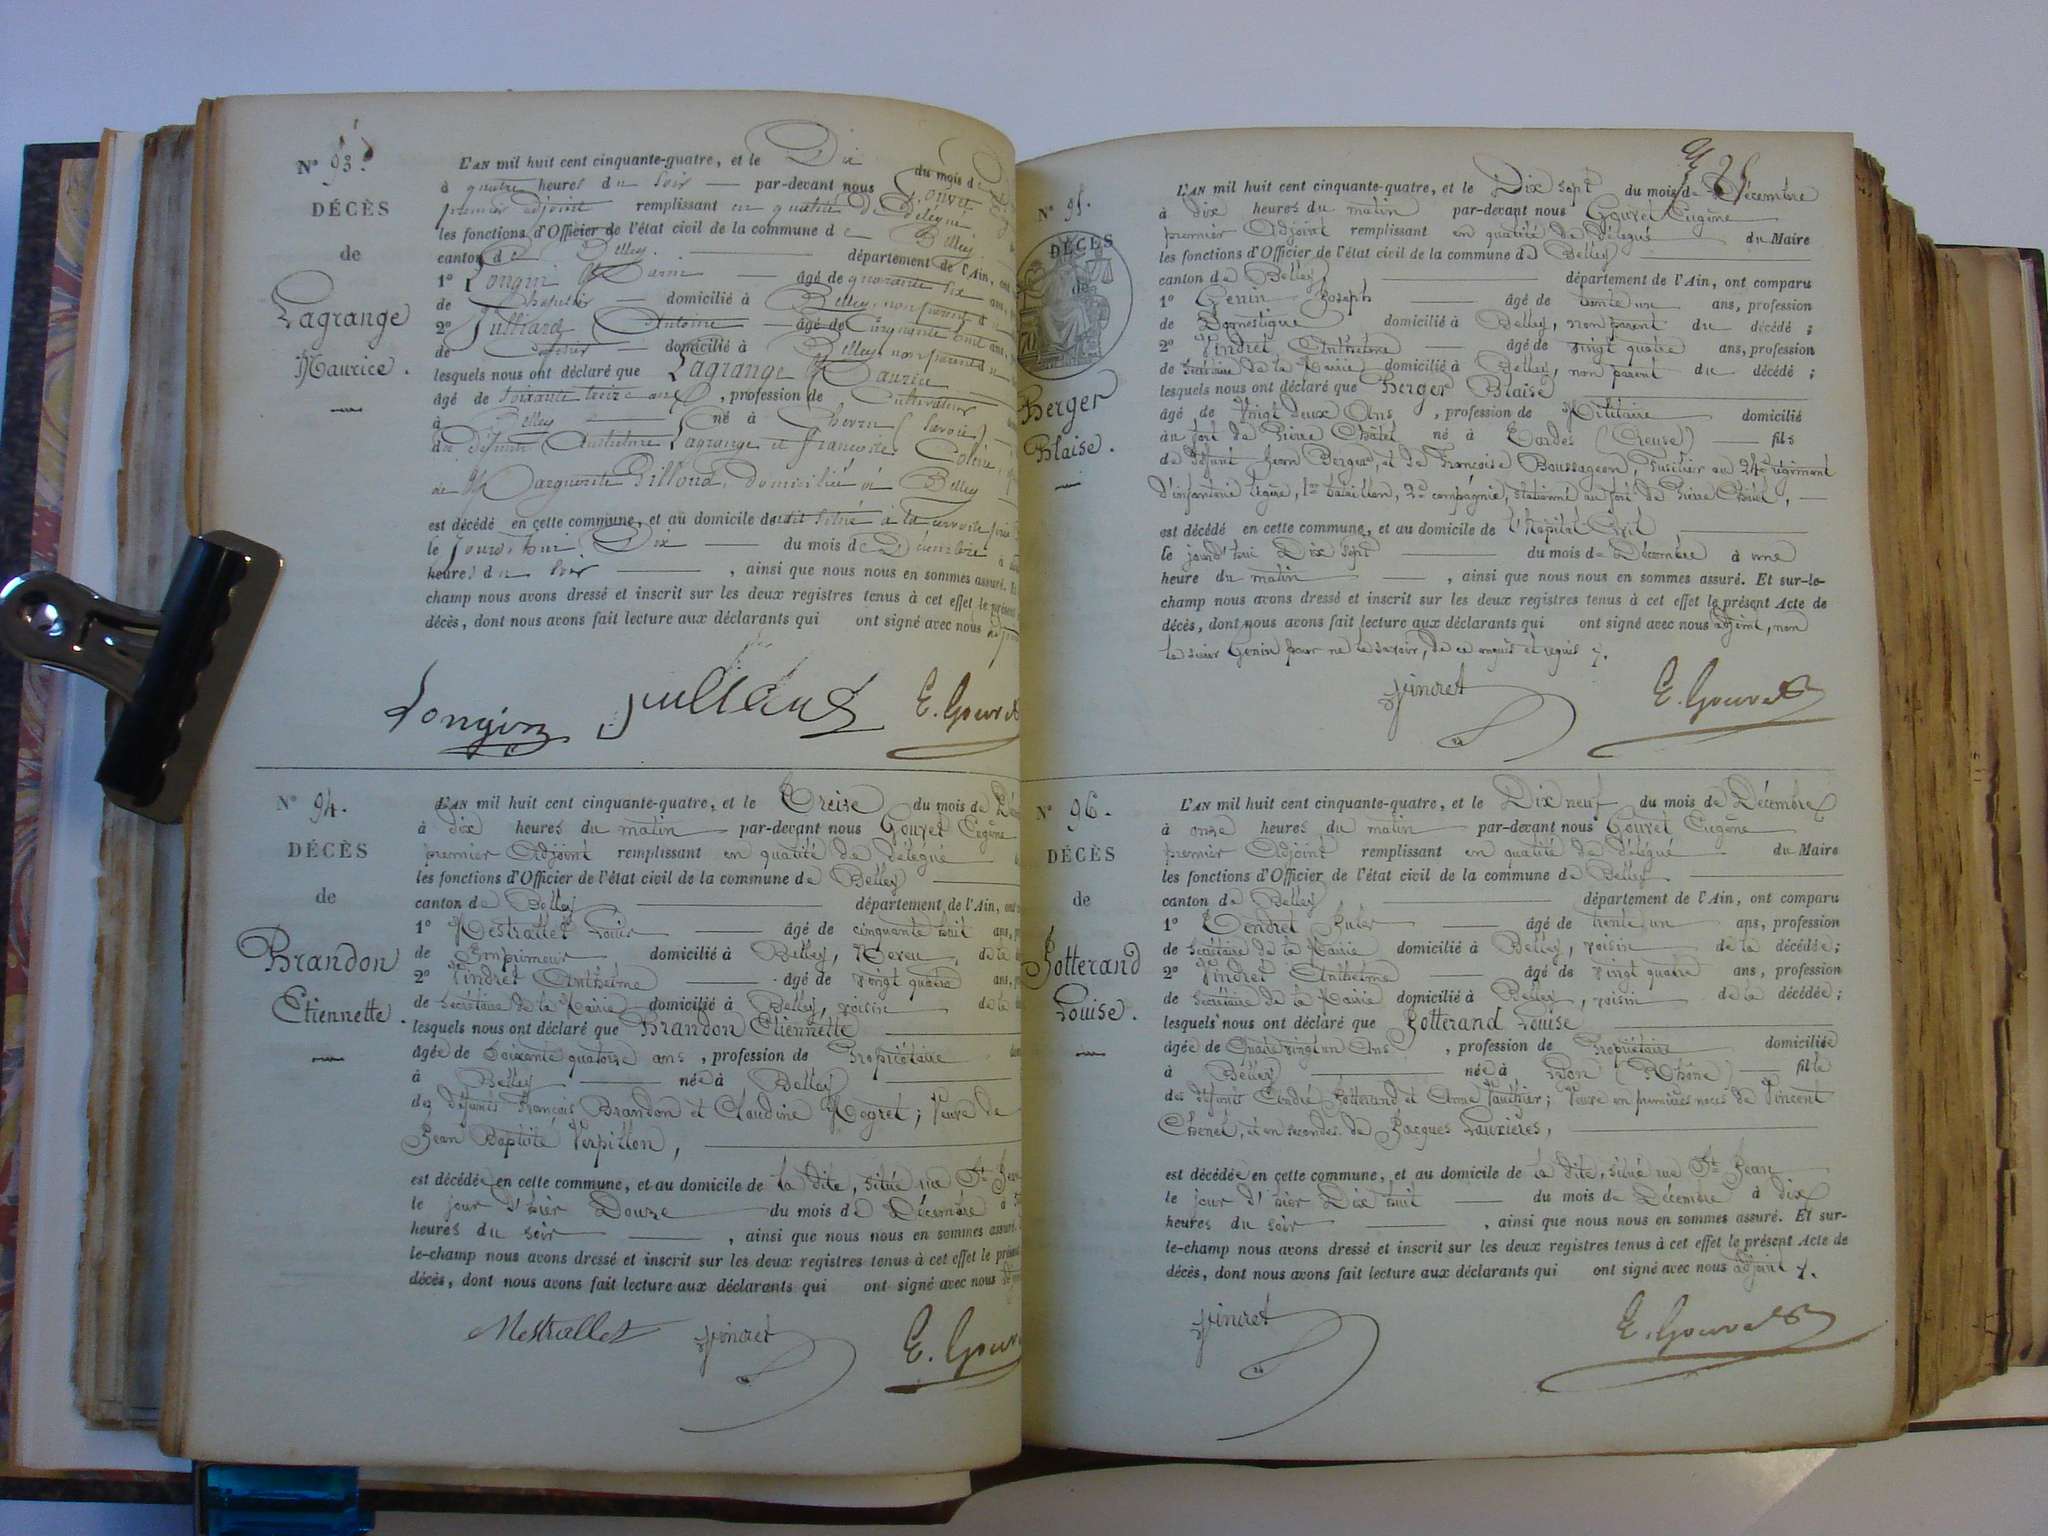 N° 93.
DÉCÈS
de
Lagrange
Maurice.
L'AN mil huit cent cinquante-quatre, et le Dix du mois d
à quatre heures du soir par-devant nous Gouvet
premier adjoint remplissant en qualité de Délégué
les fonctions d'Officier de l'état civil de la commune de Belley
canton de Belley. département de l'Ain, ont
1° Longin Marin âgé de quarante six ans,
de Chapelier domicilié à Belley, non parent du
2° Julliand Antoine âgé de Cinquante huit ans,
de domicilié à Belley, non parent du
lesquels nous ont déclaré que Lagrange Maurice
âgé de soixante treize ans, profession de Cultivateur
à Belley né à (Savoie)
du défunt Anthelme Lagrange et Françoise
de Marguerite Billoud, domiciliée à Belley
est décédé en cette commune, et au domicile dudit situé à la
le jourd'hui Dix du mois de Décembre à
heures du soir, ainsi que nous nous en sommes assuré. Et
champ nous avons dressé et inscrit sur les deux registres tenus à cet effet le présent
décès, dont nous avons fait lecture aux déclarants qui ont signé avec nous
Longin Julliand E. Gouvet
N° 94.
DÉCÈS
de
Brandon
Etiennette.
L'AN mil huit cent cinquante-quatre, et le Treize du mois de Déc
à dix heures du matin par-devant nous Gouvet Eugène
premier Adjoint remplissant en qualité de Délégué
les fonctions d'Officier de l'état civil de la commune de Belley
canton de Belley département de l'Ain, ont
1° Mestrallet Louis âgé de cinquante huit ans,
de Imprimeur domicilié à Belley, Neveu, de la
2° Vindret Anthelme âgé de vingt quatre ans,
de Secrétaire de la Mairie domicilié à Belley, voisin de la
lesquels nous ont déclaré que Brandon Etiennette
âgée de Soixante quatorze ans, profession de Propriétaire
à Belley née à Belley
des défunts François Brandon et Claudine Meyret; Veuve de
Jean Baptiste Verpillon,
est décédée en cette commune, et au domicile de la dite, situé rue St Jean
le jour d'hier Douze du mois de Décembre à
heures du soir, ainsi que nous nous en sommes assuré.
le-champ nous avons dressé et inscrit sur les deux registres tenus à cet effet le présent
décès, dont nous avons fait lecture aux déclarants qui ont signé avec nous
Mestrallet Vindret E. Gouvet
N° 95.
DÉCÈS
de
Berger
Blaise.
L'AN mil huit cent cinquante-quatre, et le Dix sept du mois de Décembre
à dix heures du matin par-devant nous Gouvet Eugène
premier Adjoint remplissant en qualité de Délégué du Maire
les fonctions d'Officier de l'état civil de la commune de Belley
canton de Belley département de l'Ain, ont comparu
1° Genin Joseph âgé de trente un ans, profession
de Domestique domicilié à Belley, non parent du décédé;
2° Vindret Anthelme âgé de vingt quatre ans, profession
de Secrétaire de la Mairie domicilié à Belley, non parent du décédé;
lesquels nous ont déclaré que Berger Blaise
âgé de Vingt Deux Ans, profession de Militaire domicilié
au fort de Pierre Châtel né à Lardes (Creuse) fils
de défunt Jean Berger, et de Françoise Boussageon, fusilier au 24e régiment
d'infanterie légère, 1er bataillon, 2e compagnie, stationné au fort de Pierre Châtel,
est décédé en cette commune, et au domicile de l'Hopital Civil
le jourd'hui Dix sept du mois de Décembre à une
heure du matin, ainsi que nous nous en sommes assuré. Et sur-le-
champ nous avons dressé et inscrit sur les deux registres tenus à cet effet le présent Acte de
décès, dont nous avons fait lecture aux déclarants qui ont signé avec nous adjoint, non
le sieur Genin pour ne le savoir, de ce enquis et requis
Vindret E. Gouvet
N° 96.
DÉCÈS
de
Jotterand
Louise.
L'AN mil huit cent cinquante-quatre, et le Dix neuf du mois de Décembre
à onze heures du matin par-devant nous Gouvet Eugène
premier Adjoint remplissant en qualité de Délégué du Maire
les fonctions d'Officier de l'état civil de la commune de Belley
canton de Belley département de l'Ain, ont comparu
1° Tendret Jules âgé de trente un ans, profession
de Secrétaire de la Mairie domicilié à Belley, voisin de la décédée;
2° Vindret Anthelme âgé de vingt quatre ans, profession
de Secrétaire de la Mairie domicilié à Belley, voisin de la décédée;
lesquels nous ont déclaré que Jotterand Louise
âgée de Quatre vingt un Ans, profession de Propriétaire domiciliée
à Belley née à Lyon (Rhône) fille
des défunts André Jotterand et Anne Vauthier; Veuve en premières noces de Vincent
Chenet, et en secondes de Jacques Lauzières,
est décédée en cette commune, et au domicile de la dite, situé rue St Jean
le jour d'hier Dix huit du mois de Décembre à dix
heures du soir, ainsi que nous nous en sommes assuré. Et sur-
le-champ nous avons dressé et inscrit sur les deux registres tenus à cet effet le présent Acte de
décès, dont nous avons fait lecture aux déclarants qui ont signé avec nous adjoint
Vindret E. Gouvet